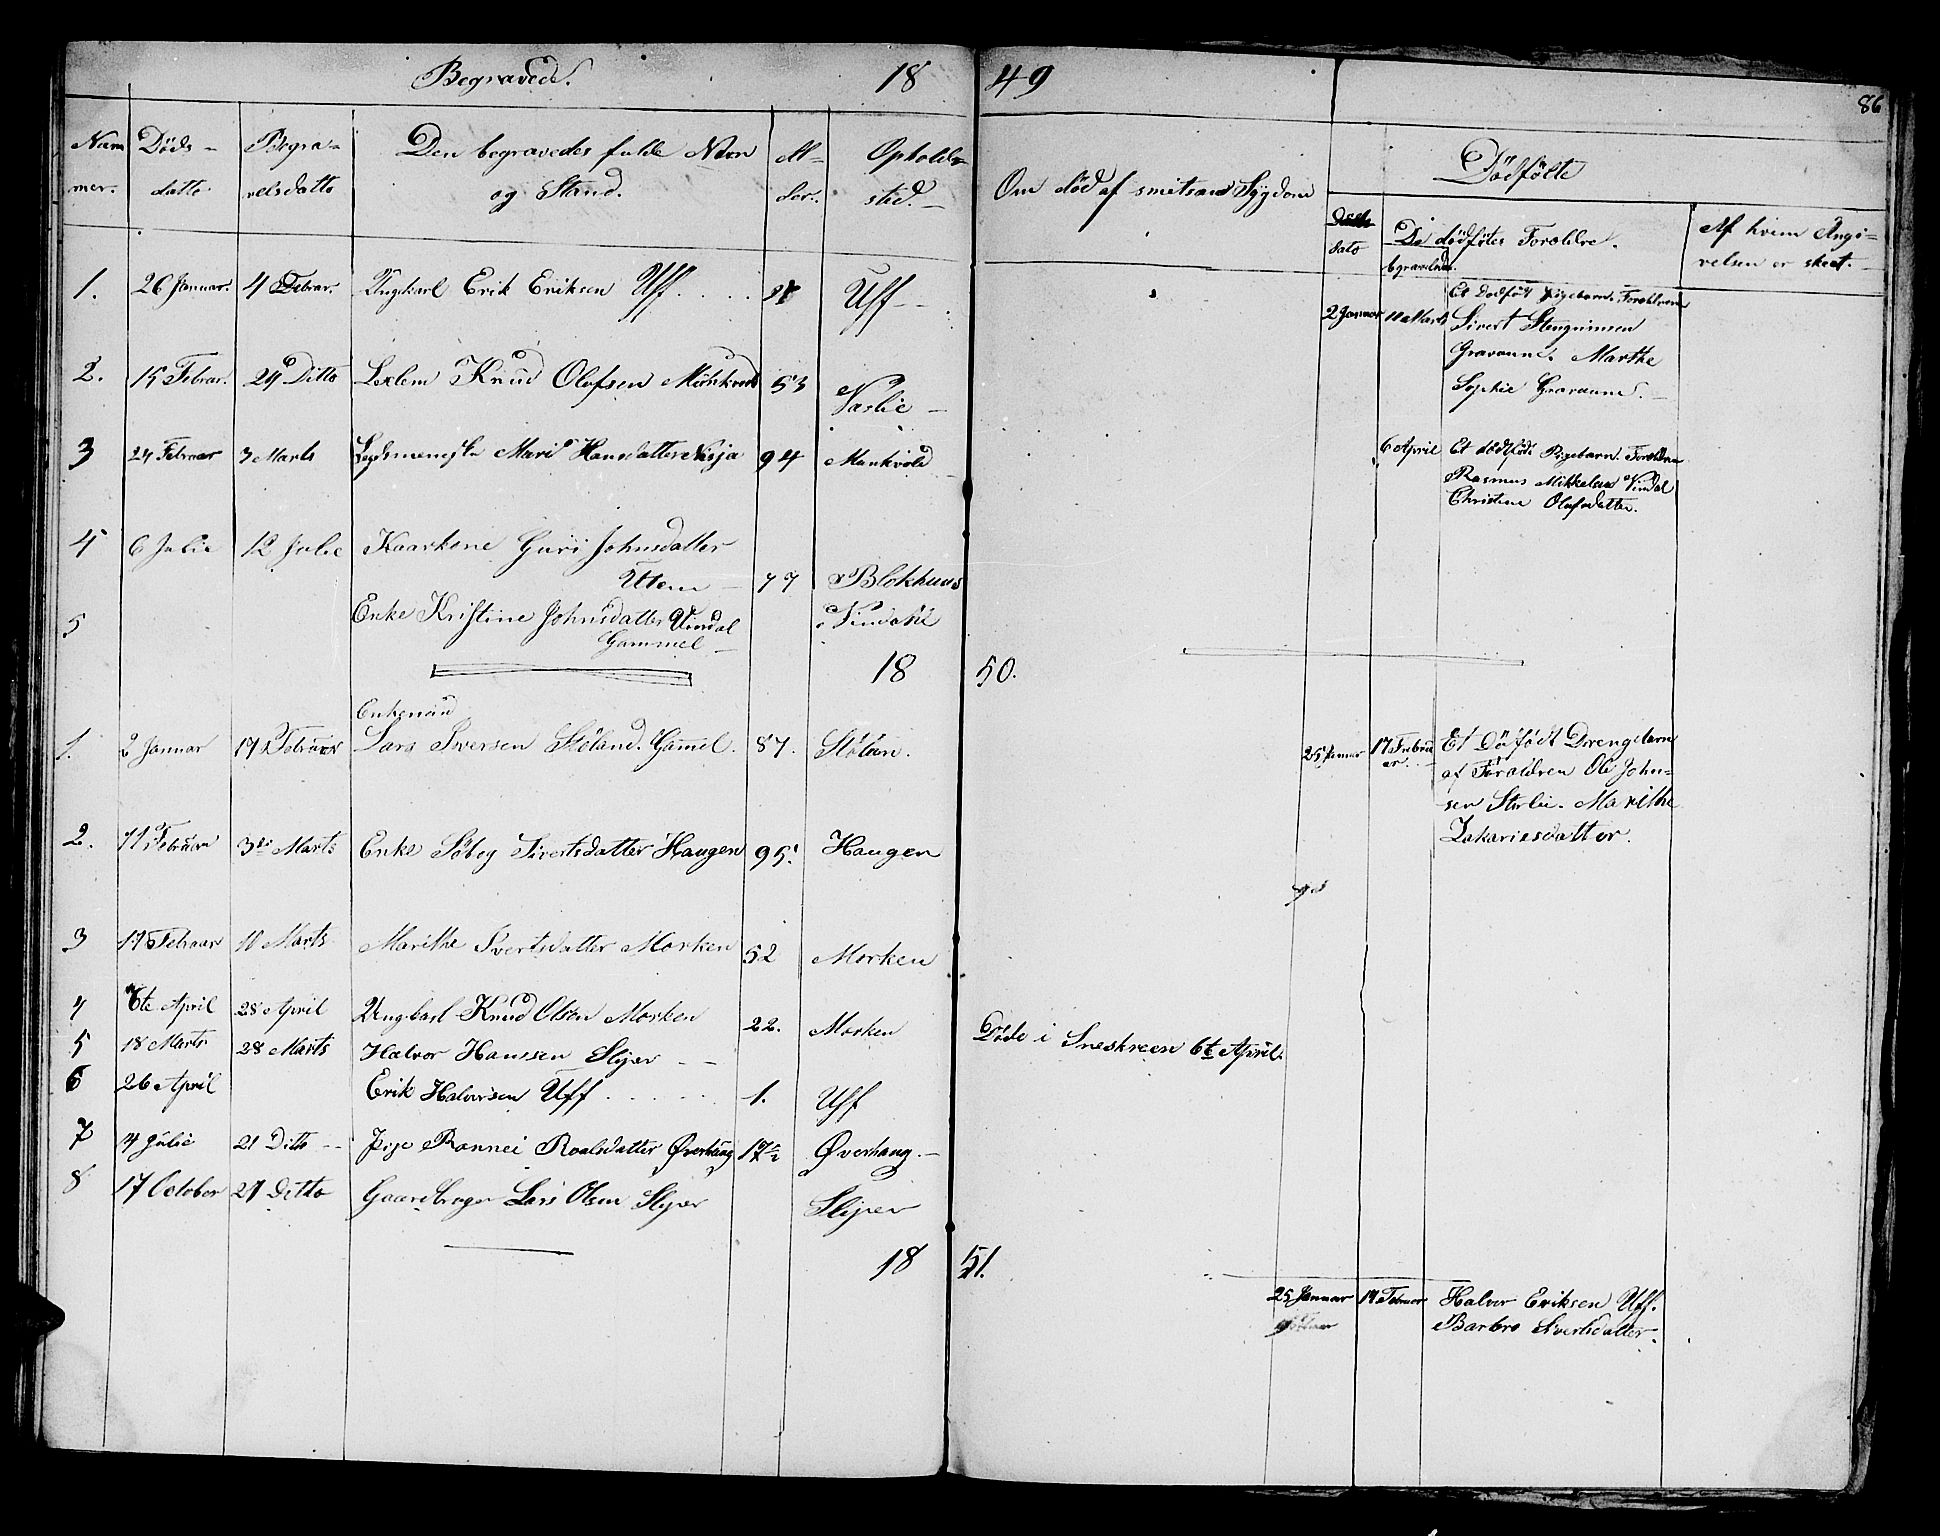 Begravede. 18 49 86
Num Döds- Begra- Den begravedes fulde Navn Al- Opholds
mer. datto velsdatto og Stand. der. sted.
Om död af smitsam Sygdom
Dödfödte
dato De dödfötes Foreldre. Af hvem Angi-
begravelses velsen er skeet.
1. 26 Januar. 4 Febrar. Ungkarl Erik Eriksen Uff. Uff
2 Januar 10 Marts Et Dödföt Pigebarn. Forældrene
Sivert Stengrimsen
Gravaune. Marthe
Sophie Gravaune.
2. 15 Febrar. 24 Ditto Leilem Knud Olafsen 53 Naslie
3 24 Februar 3 Marts Marit Hansdatter Nisja 94 Munkvold
6 April Et dödfödt Pigebarn. Foreldre
Rasmus Mikkelsen Vindal
Christine Olafsdatter.
4 6 Julie 12 Julie Kaarkone Guri Johnsdatter
Utem 77 Blokhuus
5 Enke Kristine Johnsdatter Vindal Vindahl
Gammel
18 50.
Enkemand
1. 2 Januar 17 Februar Lars Iversen Stöland. Gamel. 87. Stölan.
25 Januar 17 Febru Et Döfödt Drengebarn
ar. af Foraldren Ole John-
sen Storlie. Marithe
Zakariesdatter.
2. 11 Februar 3die Marts Enke Söbeg Sivertsdatter Haugen 95. Haugen
3 17 Februar 10 Marts Marithe Svertsdatter Morken 52 Morken
4 6te April 28 April Ungkarl Knud Olsen Morken 22. Morken Döde i Sneskreen 6te April.
5 18 Marts 28 Marts Halvor Hanssen Sliper
6 26 April Erik Halvorsen Uff 1. Uff
7 4 Julie 21 Ditto Pige Rannei Roalsdatter Øverhaug 17½ Øverhaug.
8 17 October 27 Ditto Gaardbruger Lars Olsen Sliper Sliper
18 51.
25 Januar 17 Februar Halvor Eriksen Uff.
Barbro Sivertsdatter.